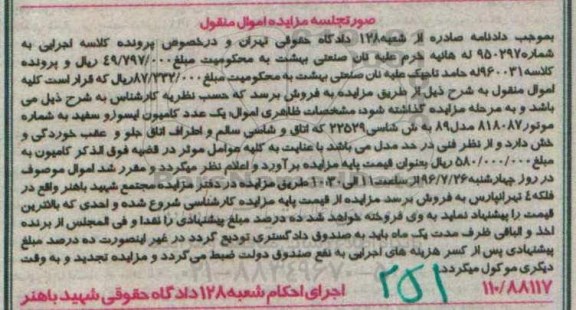 صورتجلسه مزایده اموال منقول
بموجب دادنامه صادره از شعبه۱۲۸ دادگاه حقوقی تهران و درخصوص پرونده کلاسه اجرایی به
شماره۹۵۰۲۹۷ له هانیه خرم علیه نان صنعتی بهشت به محکومیت مبلغ۴۹/۷۹۷/۰۰۰ ریال و پرونده
کلاسه۹۶۰۰۳۱له حامد تاجیک علیه نان صنعتی بهشت به محکومیت مبلغ۸۷/۲۳۲/۰۰۰ریال که قرار است کلیه
اموال منقول به شرح ذیل از طریق مزایده به فروش برسد که حسب نظریه کارشناس به شرح ذیل می
باشد و به مرحله مزایده گذاشته شود: مشخصات ظاهری اموال: یک عدد کامیون ایسوزو سفید به شماره
موتور۸۱۸۰۸۷ مدل۸۹ به ش شاسی۲۲۵۲۹ که اتاق و شاسی سالم و اطراف اتاق جلو و عقب خوردگی و
خش دارد و از نظر فنی در حد مدل می باشد با عنایت به کلیه عوامل موثر در قضیه فوق الذکر کامیون به
مبلغ۵۸۰/۰۰۰/۰۰۰ ریال بعنوان قیمت پایه مزایده برآورد و اعلام نظر میگردد و مقرر شد اموال موصوف
در روز چهارشنبه۹۶/۷/۲۶از ساعت۱۱الی۱۰:۳۰ طریق مزایده در دفتر مزایده مجتمع شهید باهنر واقع در
فلکه۴ تهرانپارس به فروش برسد مزایده از قیمت پایه مزایده کارشناسی شروع شده و احدی که بالاترین
قیمت را پیشنهاد نماید به وی فروخته خواهد شد ده درصد مبلغ پیشنهادی را نقدا و فی المجلس از برنده
اخذ و الباقی ظرف مدت یک ماه باید به صندوق دادگستری تودیع گردد در غیر اینصورت ده درصد مبلغ
پیشنهادی پس از کسر هزینه های اجرایی به نفع صندوق دولت ضبط می‌گردد و مزایده تجدید و به وقت
دیگری موکول میگردد.
۱۱۰/۸۸۱۱۷ ۲۵۱ اجرای احکام شعبه۱۲۸دادگاه حقوقی شهید باهنر